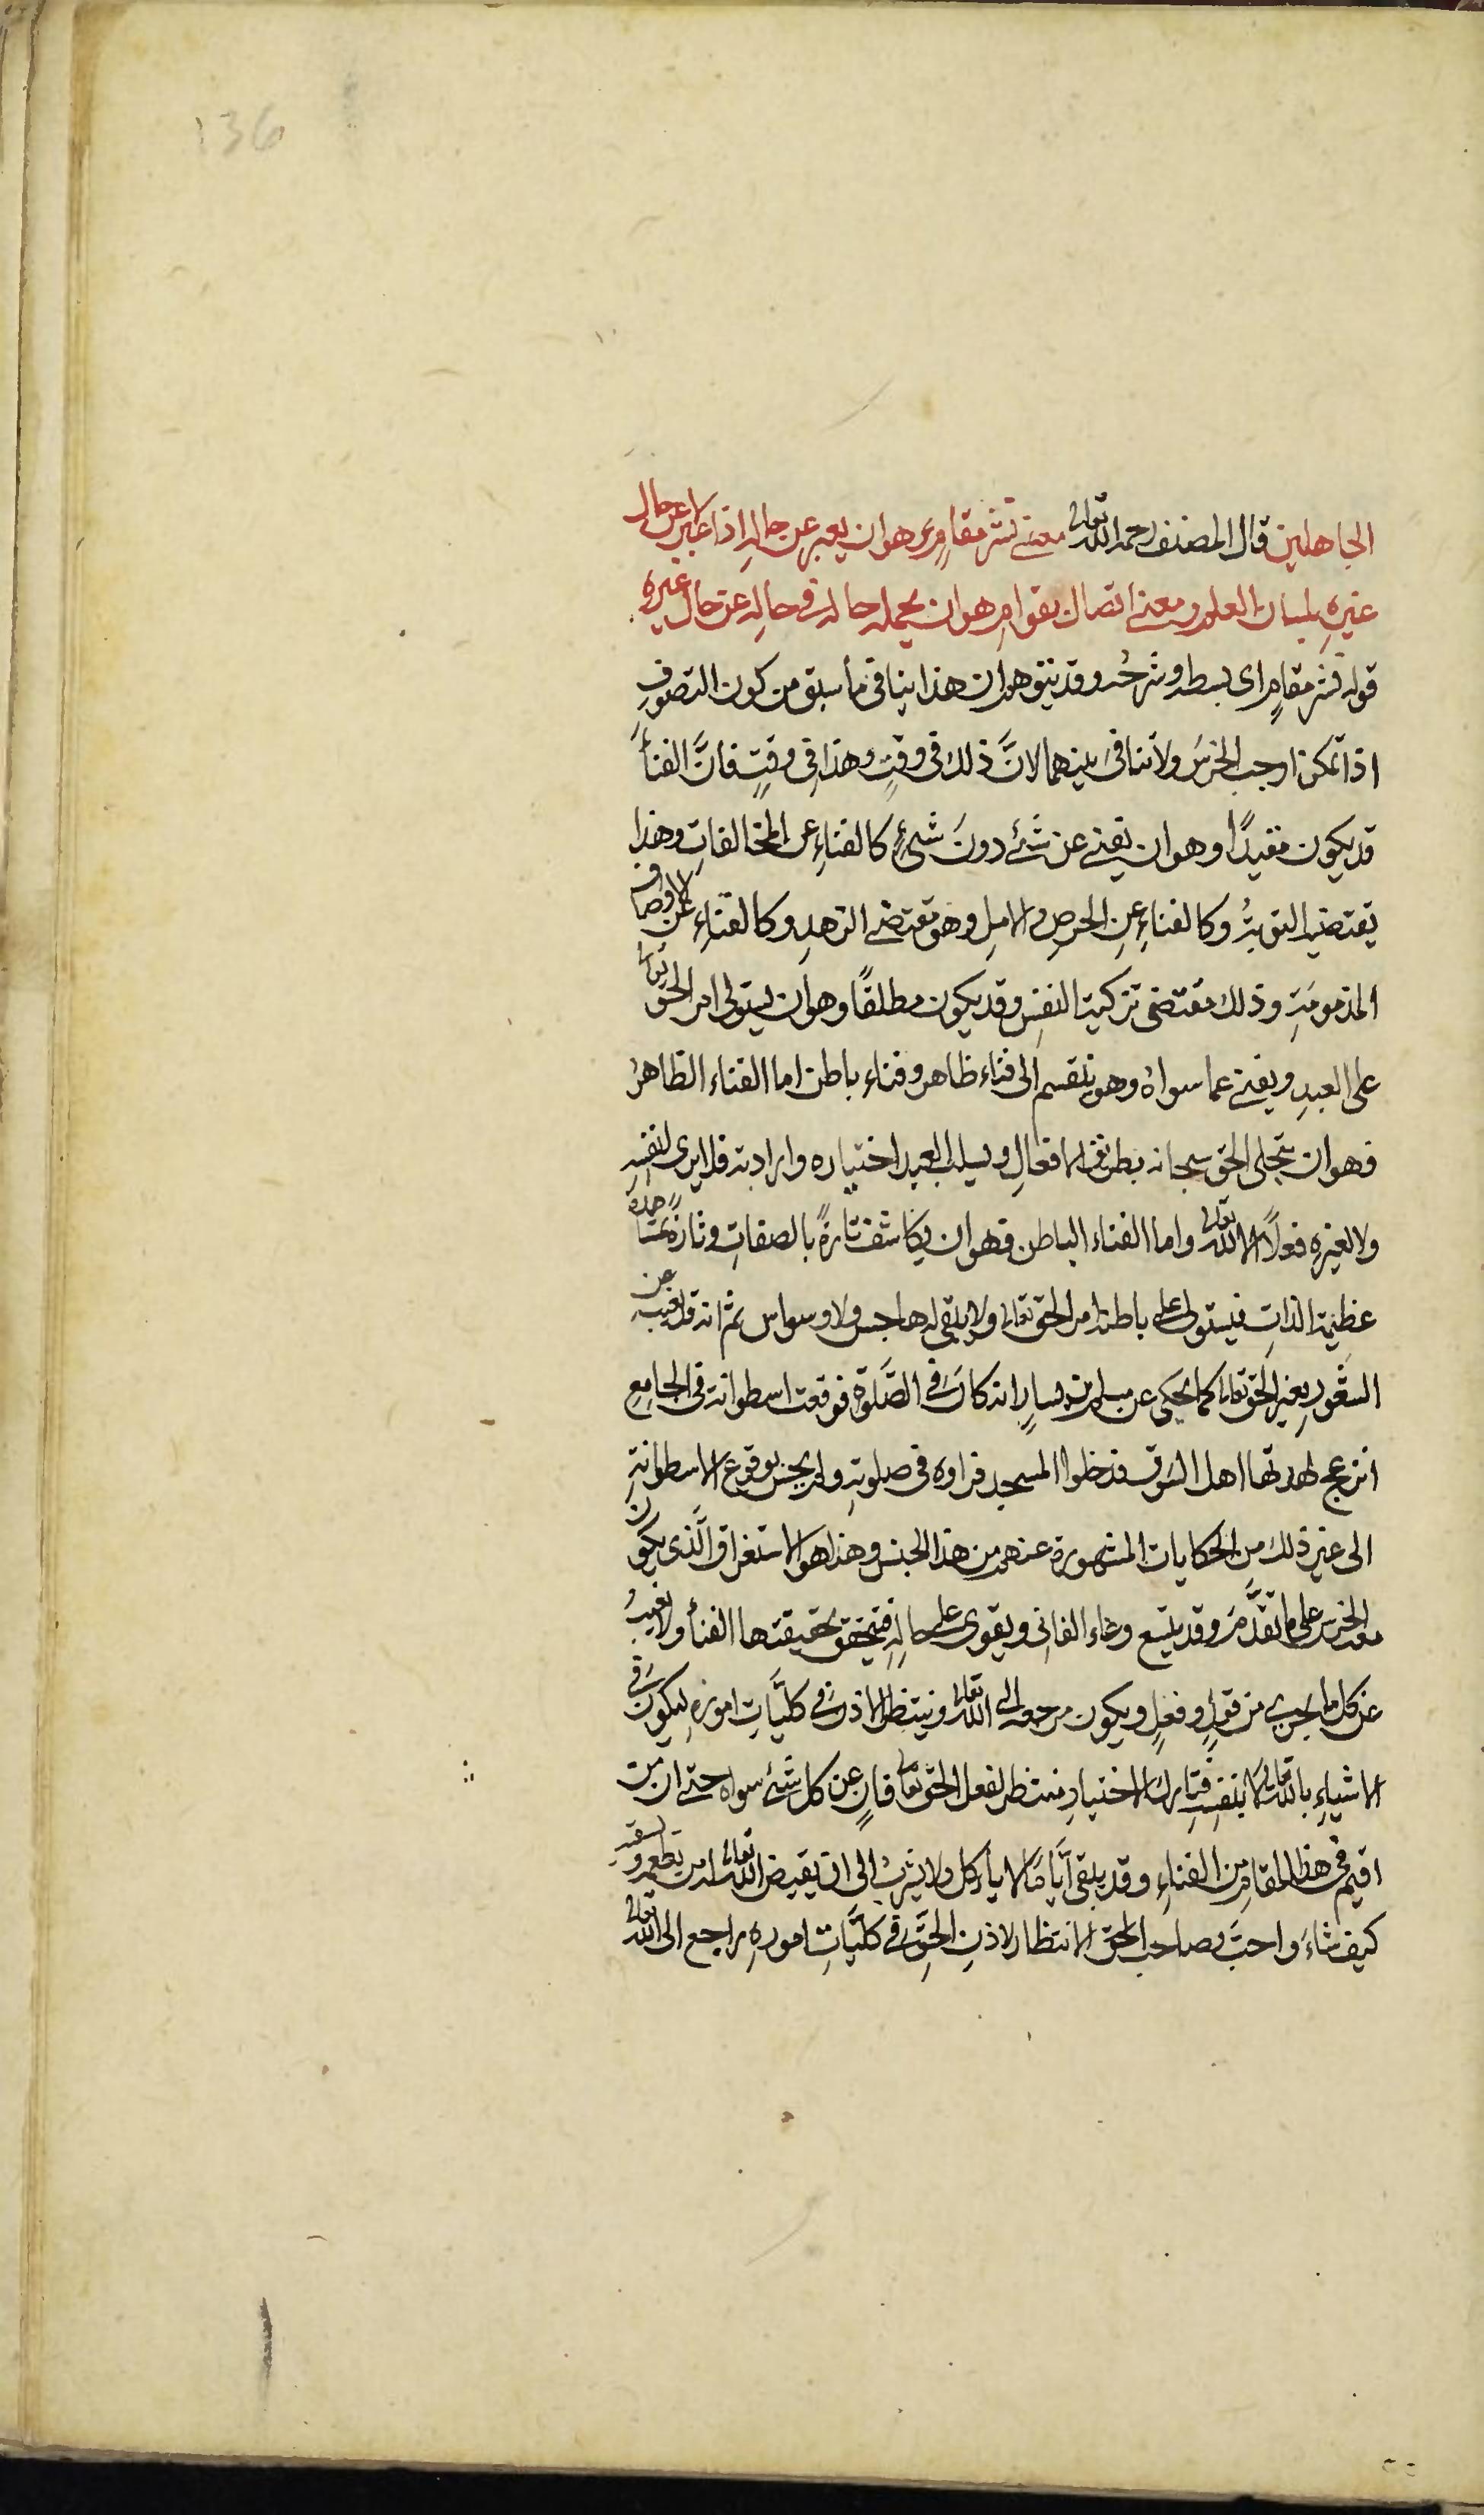 136
الجاهلين قال المصنف رحمه الله تعالى معنى نشر مقام هو ان يعبر عن حاله اذا عبر لا عن حال
غيرهِ بلسان العلم ومعنى اتصال بقوامٍ هو ان يحمله حاله في حالهِ عن حال غيره
قوله نشر مقامٍ اى بسطه وشرحُه وقد يتوهم ان هذا ينافى ما سبق من كون التصوفِ
اذا تمكن اوجب الخرسَ ولا تنافىَ بينهما لانَّ ذلك فى وقتٍ وهذا فى وقتٍ فانَّ الفنأَ
قد يكون مقيدًا وهو ان يفنى عن شئ دونَ شئٍ كالفناءِ عن المخالفاتِ وهذا
يقتضيه التوبةُ وكالفناءِ عنِ الحرصِ والاملِ وهو مقتضى الزهدِ وكالفناءِ عن الاوصاف
المذمومةِ وذلك مقتضى تزكية النفسِ وقد يكون مطلقًا وهو ان يستولى امر الحق تعالى
على العبدِ ويفنى عما سواهُ وهو ينقسم الى فناء ظاهر وفناء باطن اما الفناء الظاهرُ
فهو ان يتجلى الحق سبحانه بطريق الافعالِ ويسلب العبد اختياره وارادته فلا يرى لنفسهِ
ولا لغيرهِ فعلًا الا لله تعالى واما الفناء الباطن فهو ان يكاشف تارةً بالصفاتِ وتارةً بمشاهدة
عظيمة الذاتِ فيستولى على باطنه امر الحق تعالى ولا يبقى له هاجس ولا وسواس ثم انه قد يغيب عن
الشعورِ بغير الحق تعالى كما يحكى عن مسلم بن يسارٍ انه كانَ فى الصَّلوةِ فوقعت اسطوانة فى الجامعِ
انزعج لهدتها اهل السَوق فدخلوا المسجد فراوه فى صلوتهِ ولم يحس بوقوع الاسطوانةِ
الى غير ذلك من الحكايات المشهورة عنهم من هذا الجنس وهذا هو الاستغراق الَّذى يكون
معه الخرس على ما تقدَّمَ وقد يتسع وعاء الفانى ويقوى على حالهِ فيتحقق بحقيقتها الفنأ ولا يغيبُ
عن كل ما يجرى من قولٍ وفعلٍ ويكون مرجعه الى الله تعالى وينتظر الاذن فى كليَّاتِ امورهِ ليكون فى
الاشياءِ بالله تعالى لا بنفسهِ فتارك الاختيارِ منتظر لفعل الحق تعالى فانٍ عن كل شئ سواه حتى ان من
اقيم فى هذا المقام من الفناءِ وقد يبقى ايَّامًا لا يأكل ولا يشربُ الى ان يقيض الله تعالى له من يطعمه ويسقيه
كيف شاءَ واحبَّ وصاحب الحق الانتظار لاذنِ الحقِّ فى كليَّاتِ امورهِ راجع الى الله تعالى